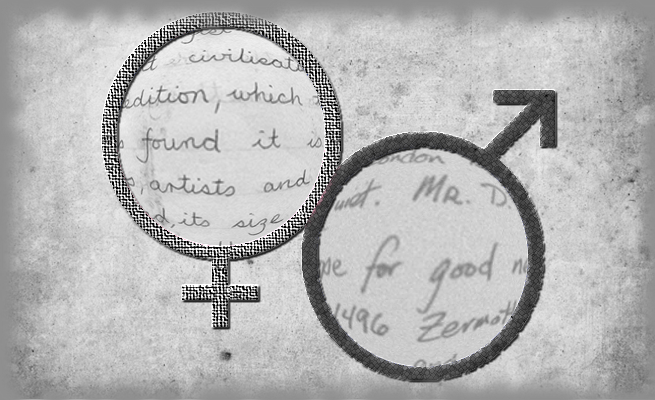 civilisat
edition, which
found it is
artists and
its size
London
Mr. D
for good
1496 Zermott
and